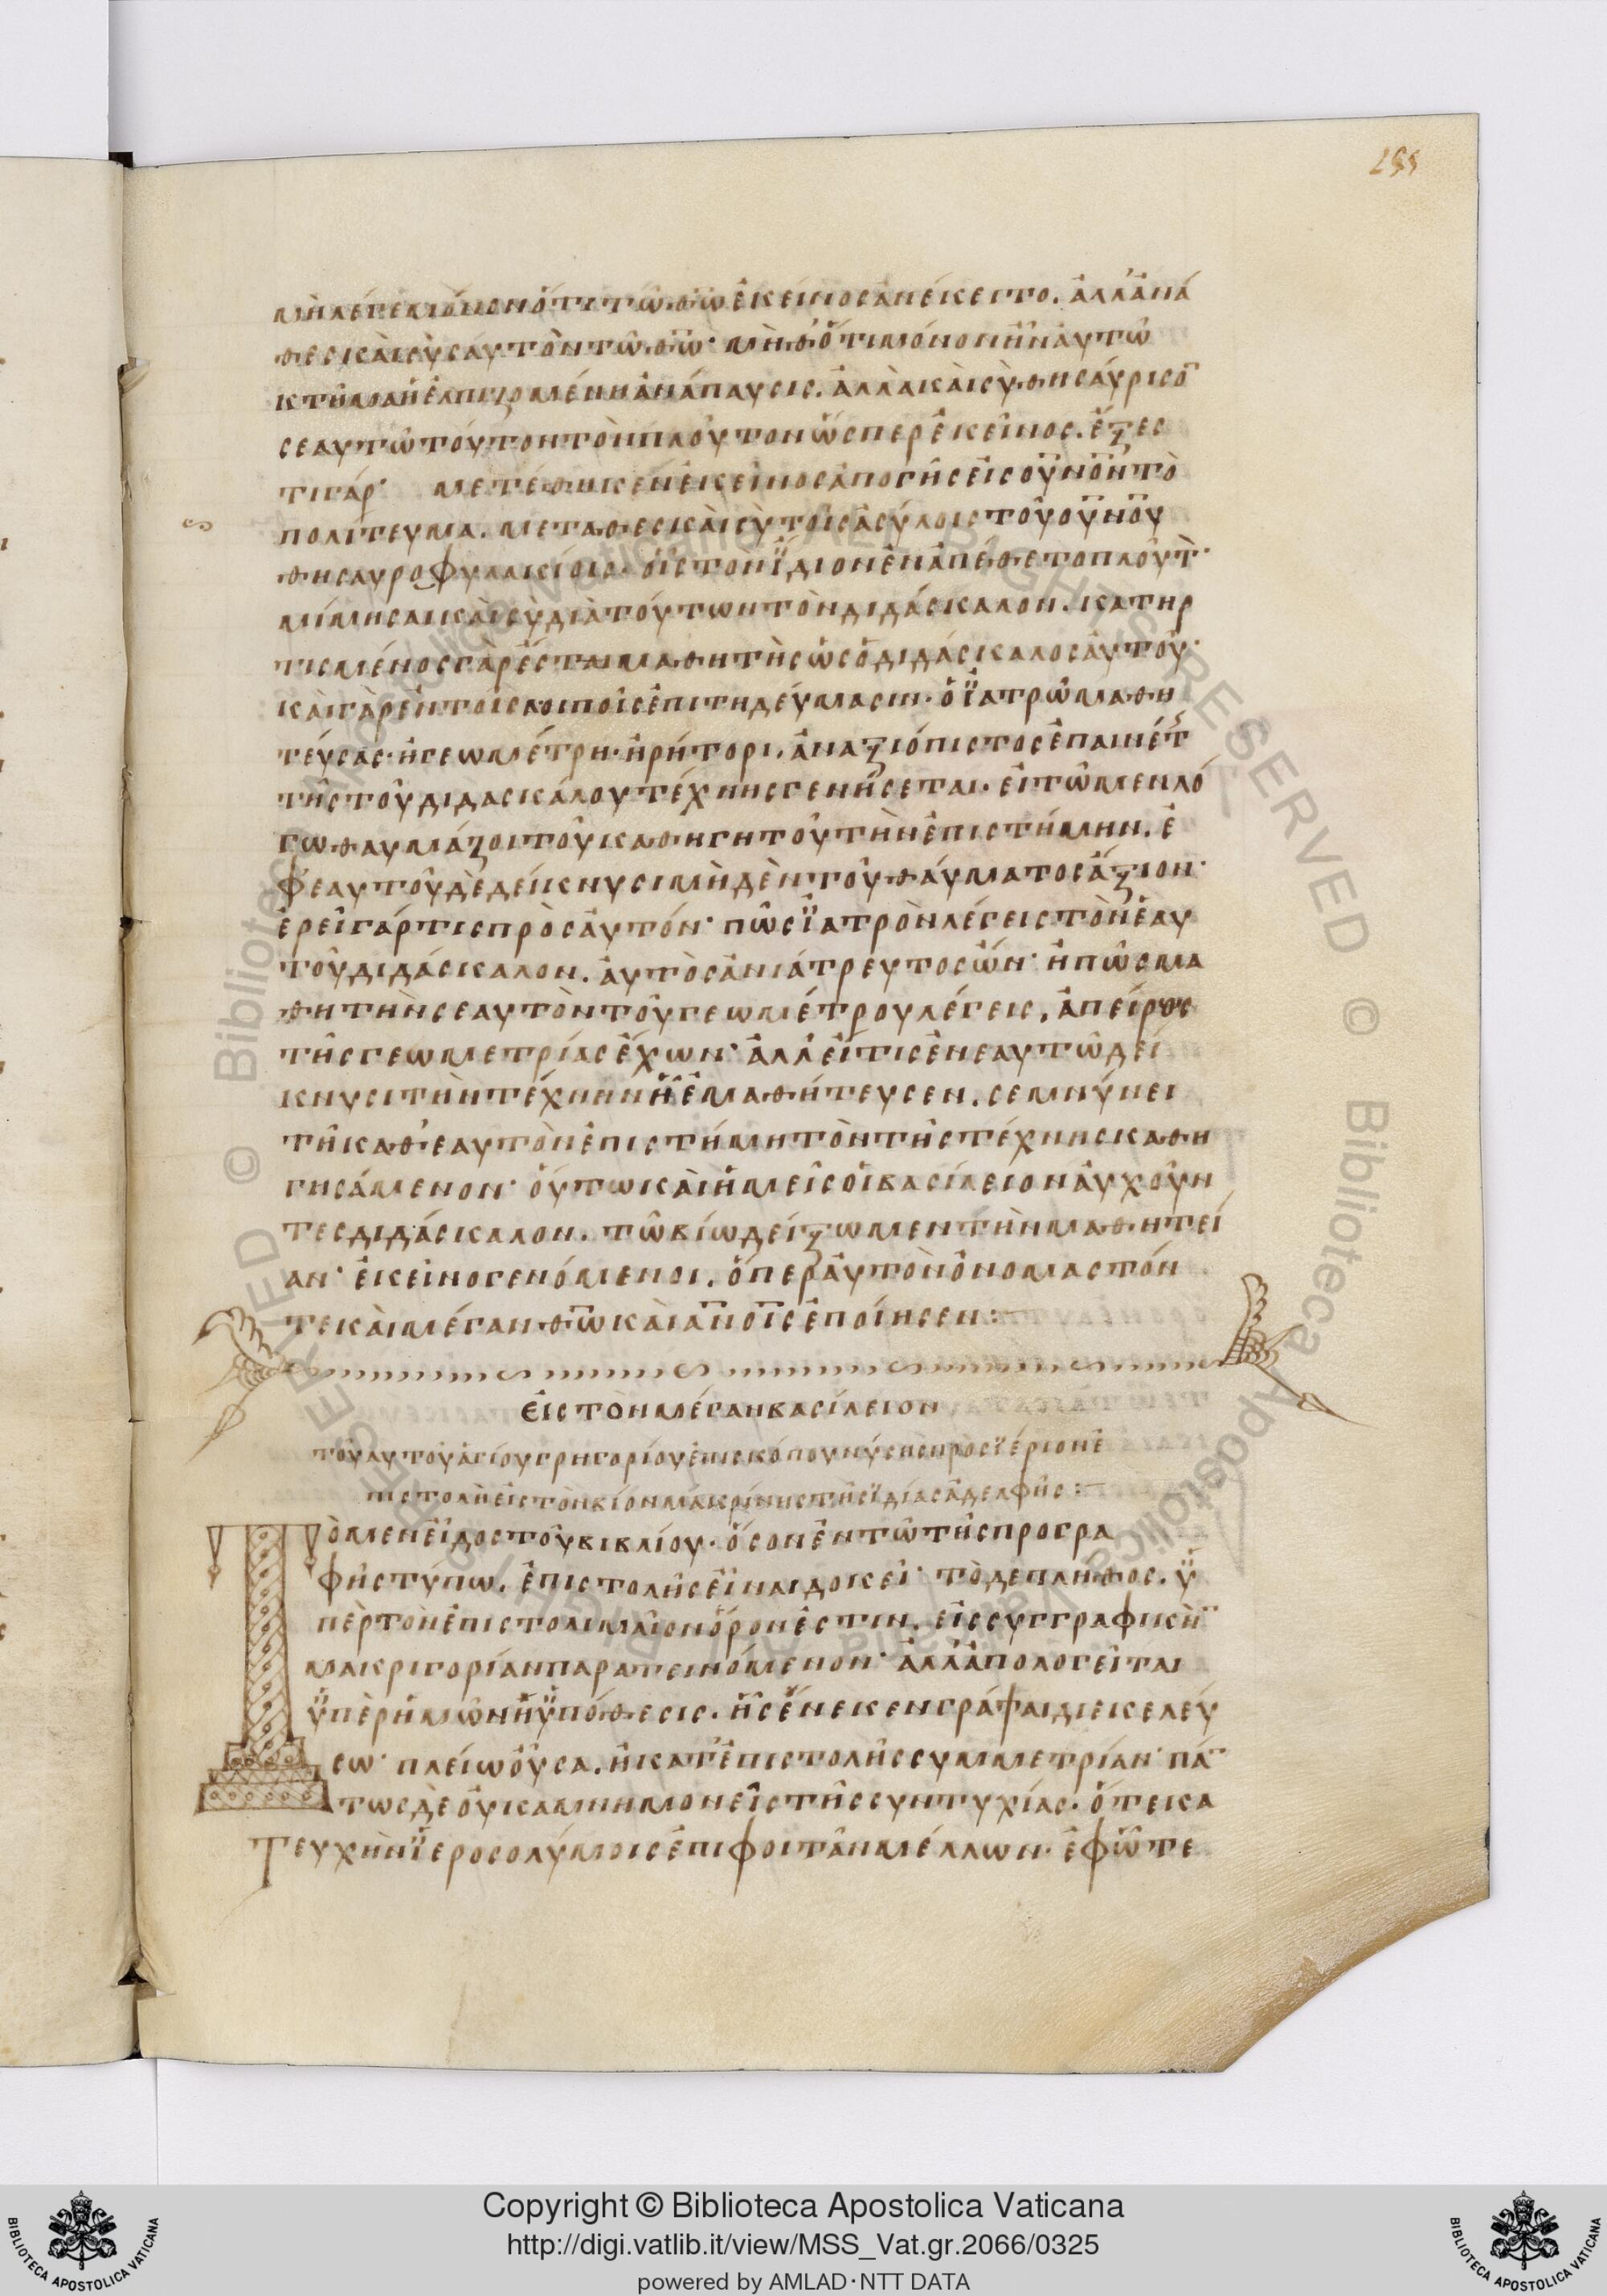 255
μὴλέγεμόνονὅτιτῶθ̅ω̅ἐκεῖνοςἀνέκειτο. ἀλλ’ἀνά
θεςκαὶσὺσαυτὸντῶθ̅ω̅· μὴδ’ὅτιμόνονἦναυτῶ
κτῆμαἡἐλπιζομένηἀνάπαυσις. ἀλλὰκαὶσὺθησαύρισο̅
σεαυτῶτοῦτοντὸνπλοῦτονὥσπερἐκεῖνος. ἔξεσ
τιγάρ· μετέθηκενἐκεῖνοςἀπογῆςεἰςου̅νο̅ντὸ
πολίτευμα. μεταθεςκαὶσὺτοῖςἀσύλοιςτοῦου̅νο̅υ
θησαυροφυλακίοις· οἷςτονἴδιονἐναπέθετοπλοῦτ̀·
μίμησαικαὶσὺδιὰτούτωντὸνδιδάσκαλον. κατηρ
τισμένοςγὰρἔσταιμαθητὴςὡςὁδιδάσκαλοςαὐτοῦ·
καὶγὰρἐντοῖςλοιποῖςἐπιτηδεύμασιν· ὁἰατρῶμαθη
τεύσας· ἢγεωμέτρη· ἢρήτορι. ἀναξιόπιστοςἐπαινέτ
τῆςτοῦδιδασκάλουτέχνηςγενήσεται· εἰτῶμενλό
γωθαυμάζοιτοῦκαθηγητοῦτὴνἐπιστήμην. ἐ
φ’εαυτοῦδὲδείκνυσιμὴδὲντοῦθαύματοςἄξιον·
ἐρεῖγάρτιςπρὸςαὐτόν· πῶςἰατρὸνλέγειςτὸνἑαυ
τοῦδιδάσκαλον. αὐτὸςἀνιάτρευτοςὤν· ἢπῶςμα
θητὴνσεαυτὸντοῦγεωμέτρουλέγεις, ἀπείρως
τῆςγεωμετρίαςἔχων· ἀλλ’εἴτιςἐνεαυτῶδεί
κνυσιτὴντέχνηνἣνἐμαθήτευσεν. σεμνύνει
τῆκαθ’εαυτὸνἐπιστήμητὸντῆςτέχνηςκαθη
γησάμενον· οὕτωκαὶἡμεῖςοἱβασίλειοναὐχοῦν
τεςδιδάσκαλον. τῶβίωδείξωμεντὴνμαθητεί
αν· ἐκεῖνογενόμενοι. ὅπεραὐτὸνὀνομαστόν
τεκαὶμέγανθ̅ω̅καὶα̅νο̅ιςἐποίησεν:
εἰςτὸνμέγανβασίλειον
τοῦαυτοῦἁγίουγρηγορίουἐπισκόπουνύσηςπρὸςἱέριονἐ
πιστολὴεἰςτὸνβίονμακρίνηςτῆςἰδίαςἀδελφῆς:
Τὸμενεἶδοςτοῦβιβλίου· ὅσονἐντῶτῆςπρογρα
φῆςτύπω. ἐπιστολῆςεἶναιδοκεῖ· τὸδεπλῆθος. ὑ
πὲρτὸνἐπιστολιμαῖονὅρονἐστιν. εἰςσυγγραφικὴ̅
μακρηγορίανπαρατεινόμενον· ἀλλ’ἀπολογεῖται
ὑπὲρἡμῶνἡὑπόθεσις. ἧςἕνεκενγράψαιδιεκελεύ
σω· πλείωοὖσα. ἢκατ’ἐπιστολῆςσυμμετρίαν· πά̅
τωςδὲοὐκαμνημονεῖςτῆςσυντυχίας. ὅτεκα
τευχὴνἱεροσολύμοιςἐπιφοιτᾶνμέλλων· ἐφ’ὧτε
Copyright © Biblioteca Apostolica Vaticana
http://digi.vatlib.it/view/MSS_Vat.gr.2066/0325
powered by AMLAD·NTT DATA